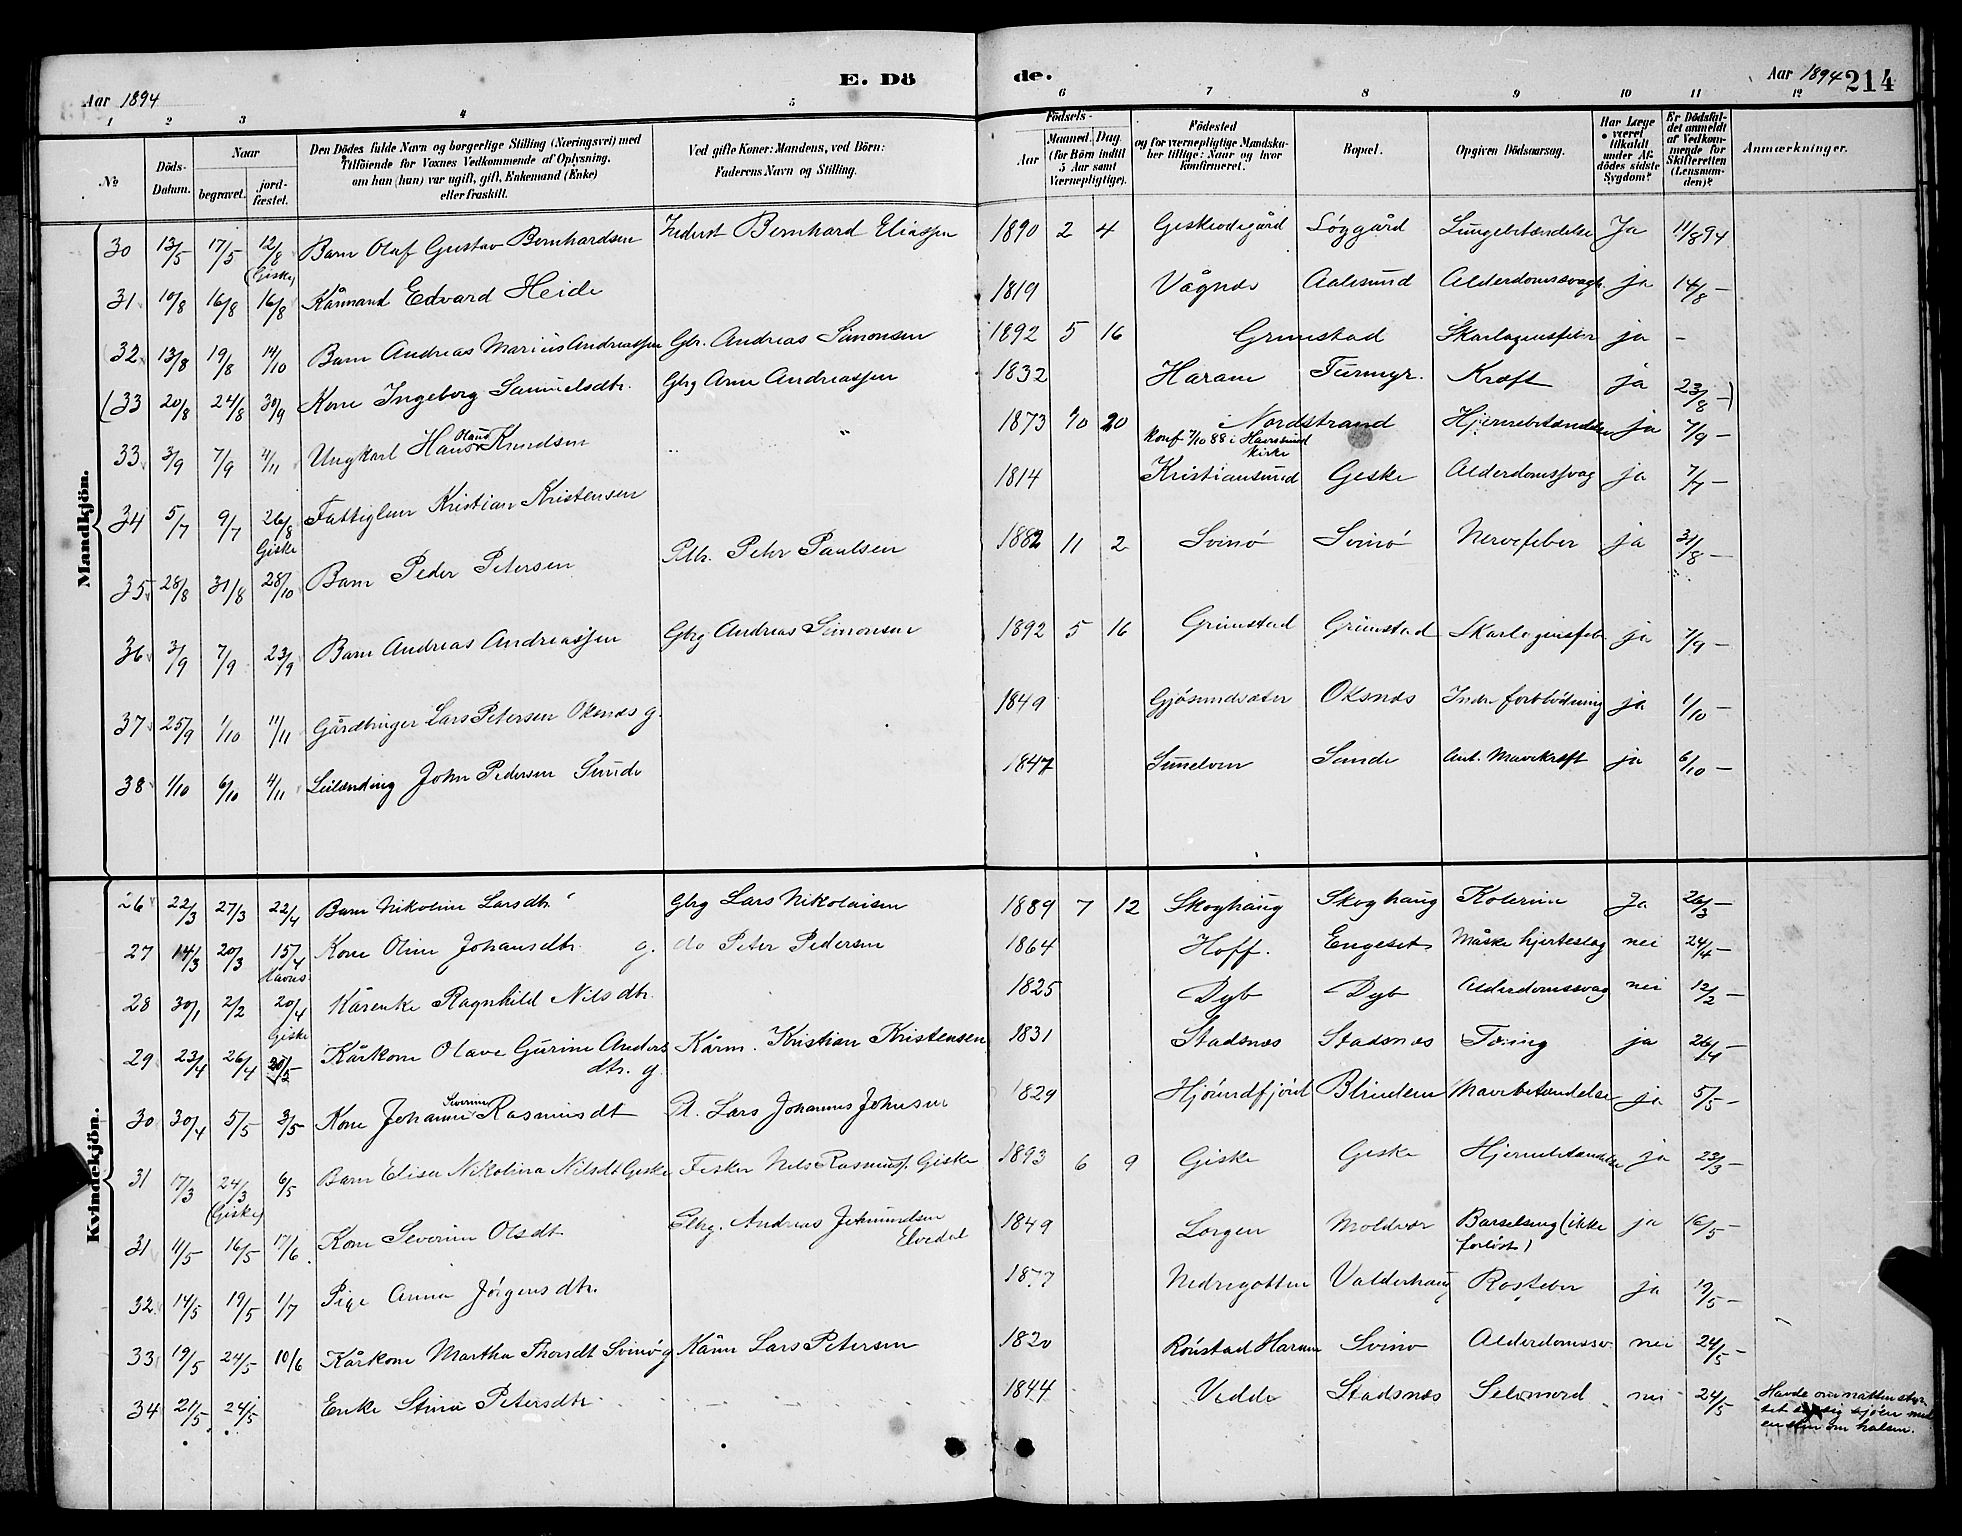 Aar 1894
E. Dö
de.
Aar 1894 214
1 2 3 4 5 6 7 8 9 10 11 12
No
Döds-Datum.
Naar
begravet.
jord-fæstet.
Den Dödes fulde Navn og borgerlige Stilling (Næringsvei) med
Tilföiende for Voxnes Vedkommende af Oplysning,
om han (hun) var ugift, gift, Enkemand (Enke)
eller fraskilt.
Ved gifte Koner: Mandens, ved Börn:
Faderens Navn og Stilling.
Födsels-
Aar
Maaned. Dag
(for Börn indtil
5 Aar samt
Værnepligtige).
Födested
og for værnepligtige Mandska-
ber tillige: Naar og hvor
konfirmeret.
Bopæl.
Opgiven Dödsaarsag.
Har Læge
været
tilkaldt
under Af-
dödes sidste
Sygdom?
Er Dödsfal-
det anmeldt
af Vedkom-
mende for
Skifteretten
(Lensman-
den)?
Anmærkninger.
Mandkjön.
30 13/5 17/5 12/8 (Giske) Barn Olaf Gustav Bernhardsen Inderst Bernhard Eliassen 1890 2 4 Geskeødegård Søggård Lungebetændelse Ja 11/8 94
31 10/8 16/8 16/8 Kårmand Edvard Heide 1819 Vågnes Aalesund Alderdomssvagh. ja 14/8 –
32 13/8 19/8 14/10 Barn Andreas Marius Andreassen Gbr. Andreas Simonsen 1892 5 16 Grimstad Skarlagensfeber ja –
(33 20/8 24/8 30/9 Kone Ingeborg Samuelsdtr. Gbrg Arne Andreassen 1832 Haram Furmyr. Kræft ja 23/8 –)
33 3/9 7/9 4/11 Ungkarl Hans Olaus Knudsen " 1873 10 20 Nordstrand Hjernebetændelse ja 7/9 –
konf 7/10 88 i Havssund kirke
34 5/7 9/7 26/8 Giske Fattiglem Kristian Kristensen 1814 Kristiansund Geske Alderdomssvag ja 7/7 –
35 28/8 31/8 28/10 Barn Peder Petersen Petr Paulsen 1882 11 2 Svinø Svinø Nervefeber ja 31/8 –
36 3/9 7/9 23/9 Barn Andreas Andreassen Gbrg Andreas Simonsen 1892 5 16 Grimstad Grimstad Skarlagensfeb ja 7/9 –
37 25/9 1/10 11/11 Gårdbruger Lars Petersen Oksnes g. 1849 Gjøsundsæter Oksnæs Indre forblødning ja 1/10 –
38 1/10 6/10 4/11 Leilænding John Pedersen Sunde 1847 Sunelven Sunde Ant. Mavekræft ja 6/10 –
Kvindekjön.
26 22/3 27/3 22/4 Barn Nikoline Larsdtr Gbrg Lars Nikolaisen 1889 7 12 Skoghaug Skoghaug Kolerine Ja 26/3 –
27 14/3 20/3 15/4 Havns Kone Oline Johansdtr. g. do Peter Pedersen 1864 Hoff. Engeset Måske hjerteslag nei 24/4 –
28 30/1 2/2 20/4 Giske Kårenke Ragnhild Nilsdtr. 1825 Dyb Dyb Alderdomssvag nei 12/2 –
29 23/4 26/4 20/5 Kårkone Olave Gurine Anders dtr. g. Kårm. Kristian Kristensen 1831 Stadsnæs Stadsnæs Tæring ja 26/4 –
30 30/4 5/5 3/5 Kone Johanne Severine Rasmusdt Lars Johannes Johnsen 1829 Hjørundfjord Blindem Mavebetændelse ja 5/5 –
31 17/3 24/3 (Giske) 6/5 Barn Elisa Nikolina Nilsdt Giske Fisker Nils Rasmuss. Giske 1893 6 9 Giske Geske Hjernebetændelse ja 23/3 –
31 11/5 16/5 17/6. Kone Severine Olsdt Gbrg. Andreas Jetmundsen 1849 Lorgen Moldvær Barselseng (ikke forløst) ja 16/5 –
32 14/5 19/5 1/7 Pige Anna Jörgensdtr. 1877 Nedregotten Valderhaug Rosfeber ja 19/5 –
33 19/5 24/5 10/6 Kårkone Martha Thorsdt Svinø g Kårm Lars Petersen 1820 Rönstad Haram Svinø Alderdomssv. nei 24/5 –
34 21/5 24/5 Enke Stina Petersdtr 1844 Vedde Stadsnæs Selvmord nei 24/5
Havde om natten styr-
tet sig sjøen med
en sten om halsen.